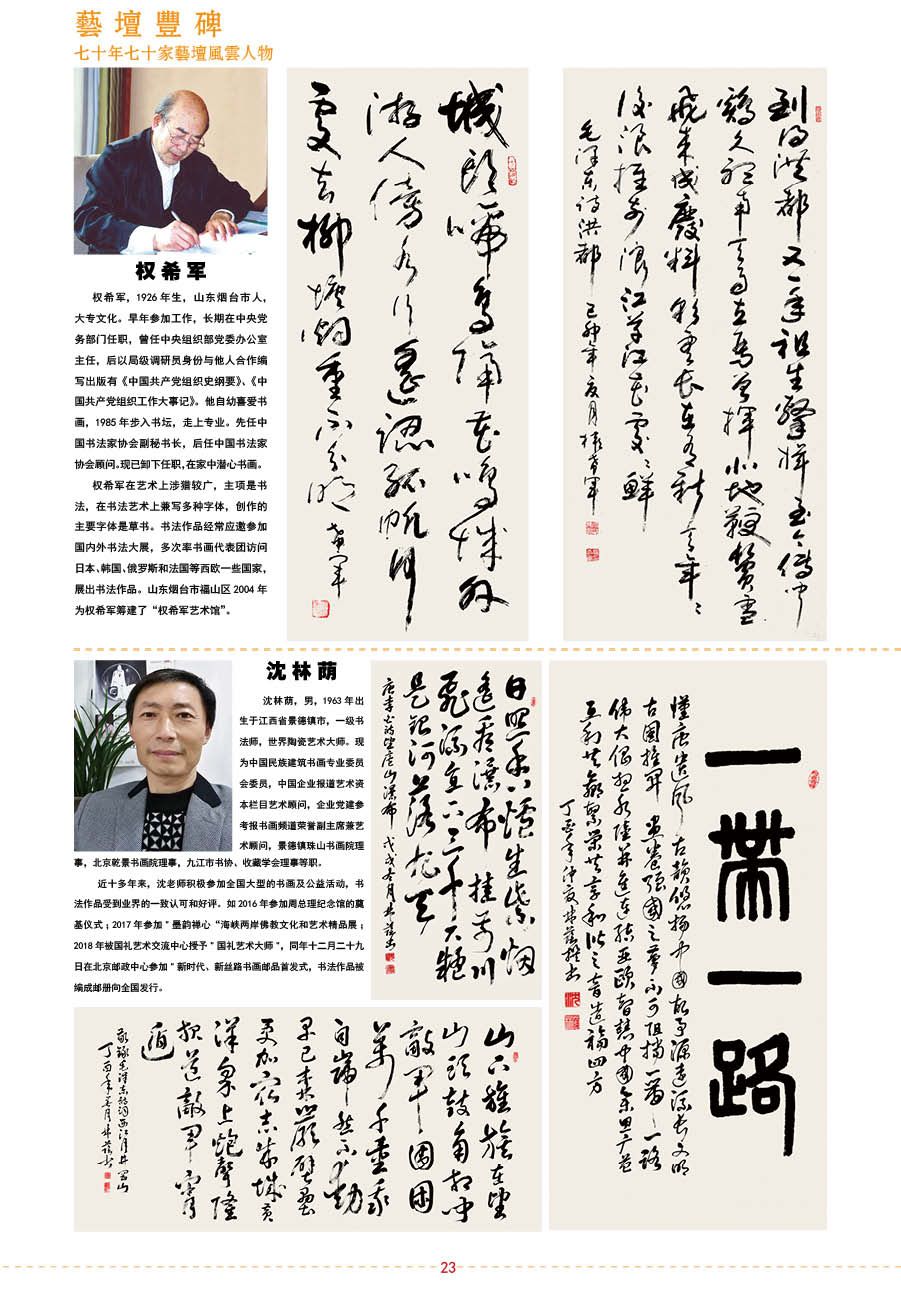 藝壇豐碑
七十年七十家藝壇風雲人物
权希军
权希军，1926 年生，山东烟台市人，
大专文化。早年参加工作，长期在中央党
务部门任职，曾任中央组织部党委办公室
主任，后以局级调研员身份与他人合作编
写出版有《中国共产党组织史纲要》、《中
国共产党组织工作大事记》。他自幼喜爱书
画，1985 年步入书坛，走上专业。先任中
国书法家协会副秘书长，后任中国书法家
协会顾问。现已卸下任职，在家中潜心书画。
权希军在艺术上涉猎较广，主项是书
法，在书法艺术上兼写多种字体，创作的
主要字体是草书。书法作品经常应邀参加
国内外书法大展，多次率书画代表团访问
日本、韩国、俄罗斯和法国等西欧一些国家，
展出书法作品。山东烟台市福山区 2004 年
为权希军筹建了“权希军艺术馆”。
城頭啼鳥隔花鳴城外
游人傍水行遙認孤帆何
處去柳塘烟重不分明 希軍
到得洪都又一年祖生擊楫至今傳聞
鷄久聽南天雨立馬曾揮北地鞭鬢雪
飛來成廢料彩雲長在有新天年年
後浪推前浪江草江花處處鮮
毛澤東詩洪都 己卯年夏月權希軍
沈林荫
沈林荫，男，1963 年出
生于江西省景德镇市，一级书
法师，世界陶瓷艺术大师。现
为中国民族建筑书画专业委员
会委员，中国企业报道艺术资
本栏目艺术顾问，企业党建参
考报书画频道荣誉副主席兼艺
术顾问，景德镇珠山书画院理
事，北京乾景书画院理事，九江市书协、收藏学会理事等职。
近十多年来，沈老师积极参加全国大型的书画及公益活动，书
法作品受到业界的一致认可和好评。如 2016 年参加周总理纪念馆的奠
基仪式；2017 年参加＂墨韵禅心“海峡两岸佛教文化和艺术精品展；
2018 年被国礼艺术交流中心授予＂国礼艺术大师＂，同年十二月二十九
日在北京邮政中心参加＂新时代、新丝路书画邮品首发式，书法作品被
编成邮册向全国发行。
日照香爐生紫烟
遙看瀑布挂前川
飛流直下三千尺疑
是銀河落九天
唐李白诗望庐山瀑布 戊戌冬月林荫书
一帶一路
漢唐遺風千古韻悠揚中國故事源遠流長文明
强國之夢不可阻擋一帶一路
丁酉年仲夏林荫撰书
山下旌旗在望
山頭鼓角相聞
敵軍圍困
萬千重我
自巋然不動
早已森嚴壁壘
更加衆志成城黄
洋界上炮聲隆
報道敵軍宵
遁
敬録毛澤東詩詞西江月井岡山
丁酉年冬月林荫书
23